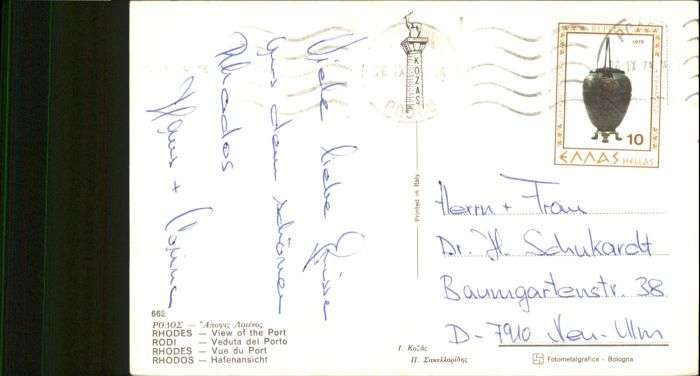 Viele liebe Grüsse
aus dem schönen
Rhodos
Hans +
662
ΡΟΔΟΣ — Ἄποψις Λιμένος
RHODES — View of the Port
RODI — Veduta del Porto
RHODES — Vue du Port
RHODOS — Hafenansicht
KOZAS
Printed in Italy
Ι. Κοζᾶς
Π. Σακελλαρίδης
Fotometalgrafica - Bologna
1979
10
ΕΛΛΑΣ HELLAS
IX 79
Herrn + Frau
Dr. H. Schukardt
Baumgartenstr. 38
D-7910 Neu-Ulm